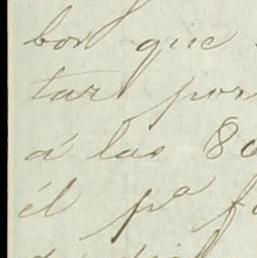 bor que
tar por
á las 80
él pª